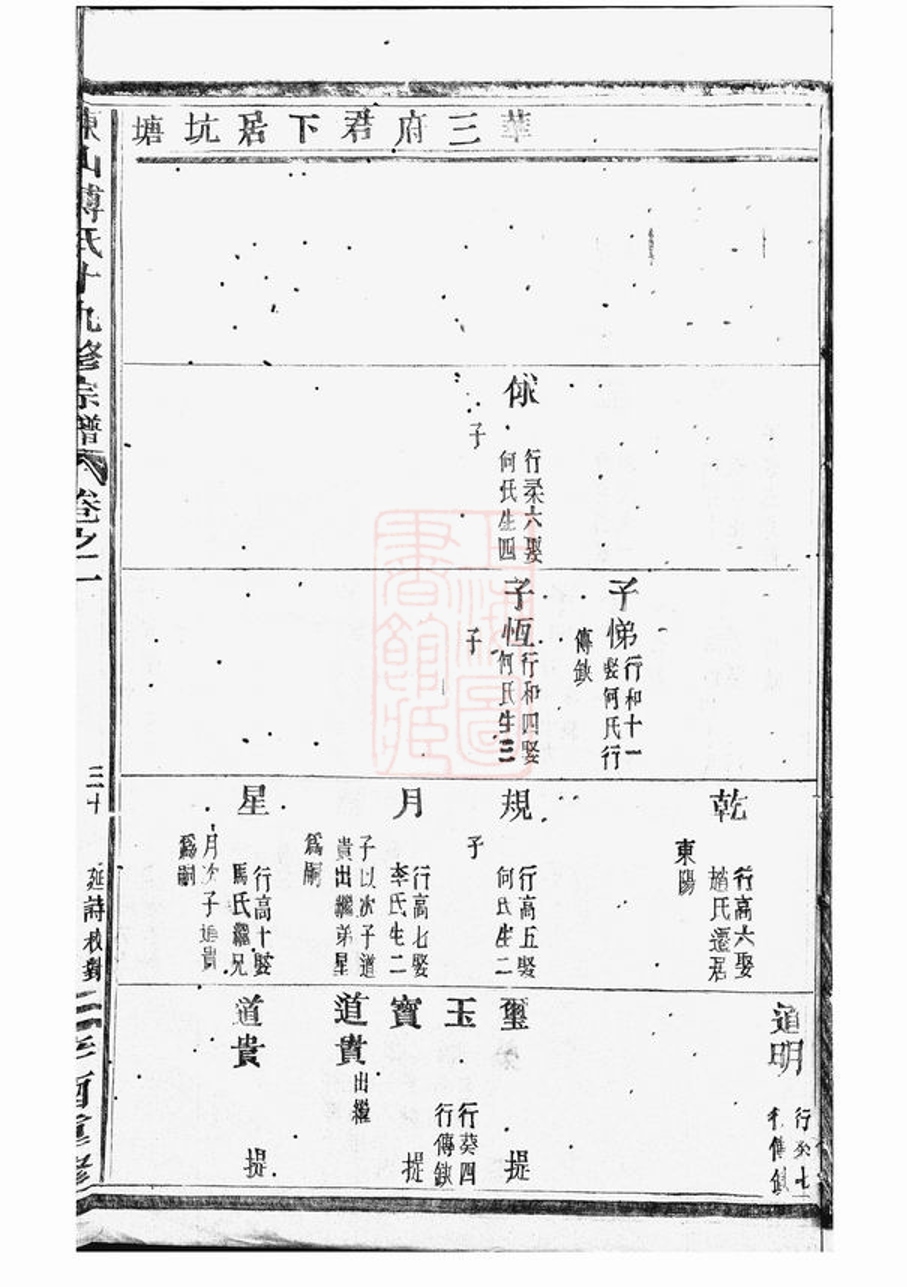 華三府君下居坑塘
俅
行柔六娶
何氏生四
子
子悌
行和十一
娶何氏行
傳缺
子恆
行和四娶
何氏生三
子
乾
行高六娶
氏遷居
東陽
規
行高五娶
何氏生二
子
月
行高七娶
李氏生二
子以次子道
貴出繼弟星
爲嗣
星
行高十娶
馬氏繼兄
月次子道貴
爲嗣
道明
行癸七
行傳缺
璽
提
玉
行葵四
行傳缺
寶
提
道貴
出繼
道貴
提
東山傅氏十九修宗譜
卷之二
三十
延詩校對
酉重修
上海圖書館藏